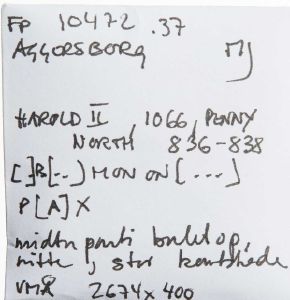 FP 10472.37
AGGERSBORG MJ
HAROLD II, 1066, PENNY
NORTH 836-838
[ ]B[..)MON ON[...]
P[A]X
midter parti bulet op,
nitte, stor kantskade
VMÅ 2674x400